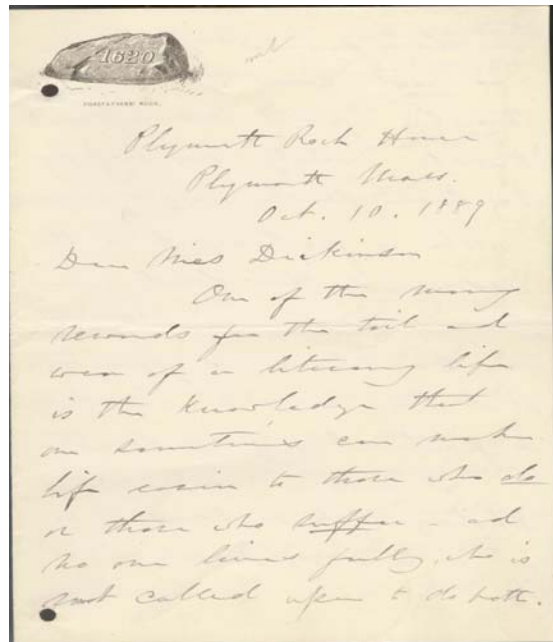 1620
FOREFATHERS' ROCK.
Plymouth Rock House
Plymouth Mass.
Oct. 10. 1889
Dear Miss Dickinson
One of the many
rewards for the toil and
wear of a literary life
is the knowledge that
one sometimes can make
life easier to those who do
or those who suffer - and
no one lives fully, who is
not called upon to do both.